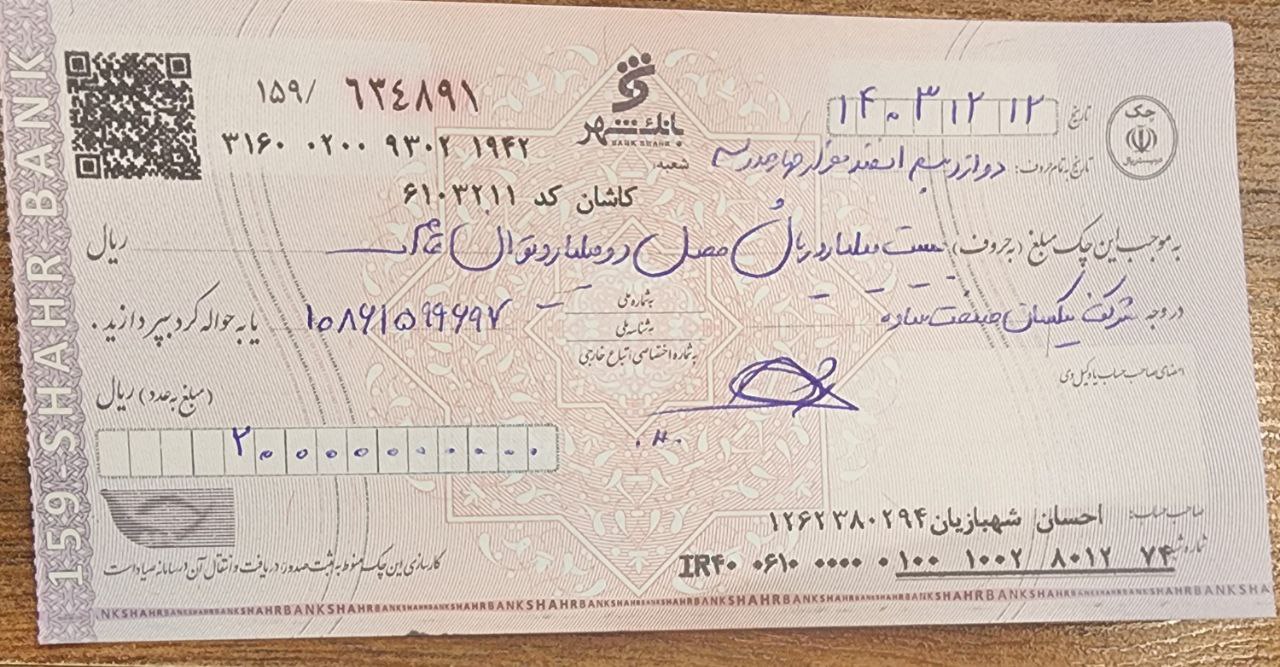 ۱۵۹/ ۶۳۴۸۹۱
بانک شهر
BANK SHAHR
تاریخ ۱۴۰۳۱۲۱۲
چک
۳۱۶۰ ۰۲۰۰ ۹۳۰۲ ۱۹۴۲
شعبه:
تاریخ به تمام حروف: دوازدهم اسفند هزار چهارصد سه
کاشان کد ۶۱۰۳۲۱۱
به موجب این چک مبلغ (به حروف) بیست میلیارد ریال معادل دو میلیارد تومان تمام ریال
در وجه شرکت یکسان صنعت ساوه
به شماره ملی
به شناسه ملی
به شماره اختصاصی اتباع خارجی
۱۰۸۶۱۵۹۹۶۹۷ یا به حواله کرد بپردازید.
امضای صاحب حساب یا وکیل وی
(مبلغ به عدد) ریال
۲۰۰۰۰۰۰۰۰۰۰
صاحب حساب: احسان شهبازیان ۱۲۶۲۳۸۰۲۹۴
IR۴۰ ۰۶۱۰ ۰۰۰۰ ۰۱۰۰ ۱۰۰۲ ۸۰۱۲ ۷۴
کارسازی این چک منوط به ثبت صدور، دریافت و انتقال آن در سامانه صیاد است
159 SHAHR BANK
SHAHRBANKSHAHRBANKSHAHRBANKSHAHRBANK